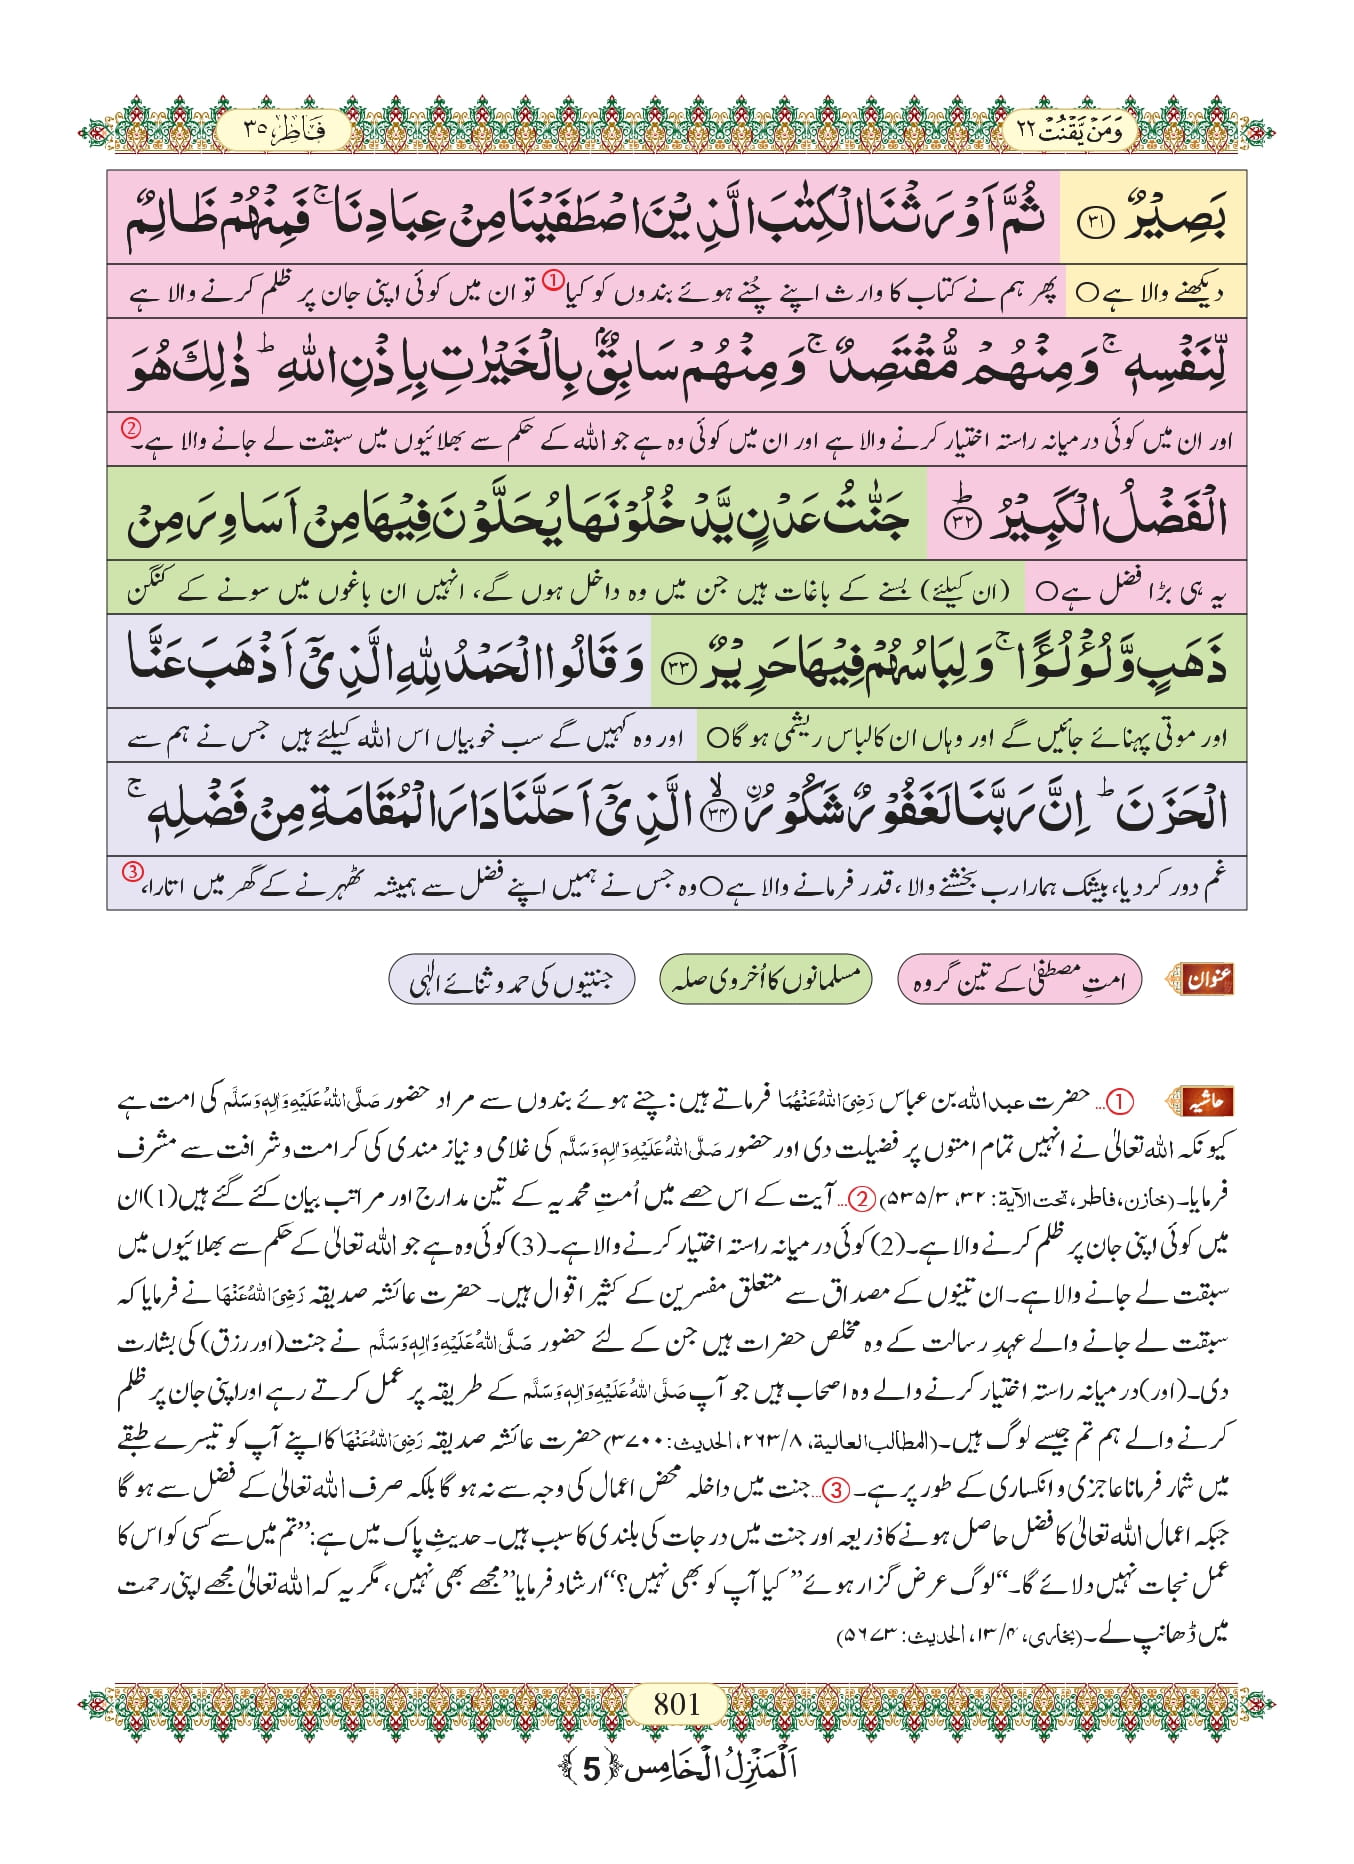 وَمَنۡ يَّقۡنُتۡ ٢٢
فَاطِر ٣٥
بَصِيۡرٌ ﴿٣١﴾ ثُمَّ اَوۡرَثۡنَا الۡكِتٰبَ الَّذِيۡنَ اصۡطَفَيۡنَا مِنۡ عِبَادِنَا ۚ فَمِنۡهُمۡ ظَالِمٌ
دیکھنے والا ہے○ پھر ہم نے کتاب کا وارث اپنے چُنے ہوئے بندوں کو کیا① تو ان میں کوئی اپنی جان پر ظلم کرنے والا ہے
لِّنَفۡسِهٖ ۚ وَمِنۡهُمۡ مُّقۡتَصِدٌ ۚ وَمِنۡهُمۡ سَابِقٌۢ بِالۡخَيۡرٰتِ بِاِذۡنِ اللّٰهِ ؕ ذٰلِكَ هُوَ
اور ان میں کوئی درمیانہ راستہ اختیار کرنے والا ہے اور ان میں کوئی وہ ہے جو اللہ کے حکم سے بھلائیوں میں سبقت لے جانے والا ہے۔②
الۡفَضۡلُ الۡكَبِيۡرُ ؕ﴿٣٢﴾ جَنّٰتُ عَدۡنٍ يَّدۡخُلُوۡنَهَا يُحَلَّوۡنَ فِيۡهَا مِنۡ اَسَاوِرَ مِنۡ
یہ ہی بڑا فضل ہے○ (ان کیلئے) بسنے کے باغات ہیں جن میں وہ داخل ہوں گے، انہیں ان باغوں میں سونے کے کنگن
ذَهَبٍ وَّلُؤۡلُؤًا ۚ وَلِبَاسُهُمۡ فِيۡهَا حَرِيۡرٌ ﴿٣٣﴾ وَقَالُوا الۡحَمۡدُ لِلّٰهِ الَّذِىۡۤ اَذۡهَبَ عَنَّا
اور موتی پہنائے جائیں گے اور وہاں ان کا لباس ریشمی ہو گا○ اور وہ کہیں گے سب خوبیاں اس اللہ کیلئے ہیں جس نے ہم سے
الۡحَزَنَ ؕ اِنَّ رَبَّنَا لَغَفُوۡرٌ شَكُوۡرُ ۙ﴿٣٤﴾ الَّذِىۡۤ اَحَلَّنَا دَارَ الۡمُقَامَةِ مِنۡ فَضۡلِهٖ ۚ
غم دور کر دیا، بیشک ہمارا رب بخشنے والا، قدر فرمانے والا ہے○ وہ جس نے ہمیں اپنے فضل سے ہمیشہ ٹھہرنے کے گھر میں اتارا،③
عنوان امتِ مصطفیٰ کے تین گروہ مسلمانوں کا اُخروی صلہ جنتیوں کی حمد و ثنائے الٰہی
حاشیہ ①... حضرت عبد اللہ بن عباس رَضِیَ اللہُ عَنْہُمَا فرماتے ہیں: چنے ہوئے بندوں سے مراد حضور صَلَّی اللہُ عَلَیْہِ وَاٰلِہٖ وَسَلَّم کی امت ہے
کیونکہ اللہ تعالیٰ نے انہیں تمام امتوں پر فضیلت دی اور حضور صَلَّی اللہُ عَلَیْہِ وَاٰلِہٖ وَسَلَّم کی غلامی و نیاز مندی کی کرامت و شرافت سے مشرف
فرمایا۔ (خازن، فاطر، تحت الآیۃ: ۳۲، ۳/۵۳۵) ②... آیت کے اس حصے میں اُمتِ محمدیہ کے تین مدارج اور مراتب بیان کئے گئے ہیں (1) ان
میں کوئی اپنی جان پر ظلم کرنے والا ہے۔ (2) کوئی درمیانہ راستہ اختیار کرنے والا ہے۔ (3) کوئی وہ ہے جو اللہ تعالیٰ کے حکم سے بھلائیوں میں
سبقت لے جانے والا ہے۔ ان تینوں کے مصداق سے متعلق مفسرین کے کثیر اقوال ہیں۔ حضرت عائشہ صدیقہ رَضِیَ اللہُ عَنْہَا نے فرمایا کہ
سبقت لے جانے والے عہدِ رسالت کے وہ مخلص حضرات ہیں جن کے لئے حضور صَلَّی اللہُ عَلَیْہِ وَاٰلِہٖ وَسَلَّم نے جنت (اور رزق) کی بشارت
دی۔ (اور) درمیانہ راستہ اختیار کرنے والے وہ اصحاب ہیں جو آپ صَلَّی اللہُ عَلَیْہِ وَاٰلِہٖ وَسَلَّم کے طریقہ پر عمل کرتے رہے اور اپنی جان پر ظلم
کرنے والے ہم تم جیسے لوگ ہیں۔ (المطالب العالیۃ، ۸/۲۶۳، الحدیث: ۳۷۰۰) حضرت عائشہ صدیقہ رَضِیَ اللہُ عَنْہَا کا اپنے آپ کو تیسرے طبقے
میں شمار فرمانا عاجزی و انکساری کے طور پر ہے۔ ③... جنت میں داخلہ محض اعمال کی وجہ سے نہ ہو گا بلکہ صرف اللہ تعالیٰ کے فضل سے ہو گا
جبکہ اعمال اللہ تعالیٰ کا فضل حاصل ہونے کا ذریعہ اور جنت میں درجات کی بلندی کا سبب ہیں۔ حدیثِ پاک میں ہے: ”تم میں سے کسی کو اس کا
عمل نجات نہیں دلائے گا۔“ لوگ عرض گزار ہوئے ”کیا آپ کو بھی نہیں؟“ ارشاد فرمایا ”مجھے بھی نہیں، مگر یہ کہ اللہ تعالیٰ مجھے اپنی رحمت
میں ڈھانپ لے۔ (بخاری، ۴/۱۳، الحدیث: ۵۶۷۳)
801
اَلۡمَنۡزِلُ الۡخَامِس ﴿5﴾